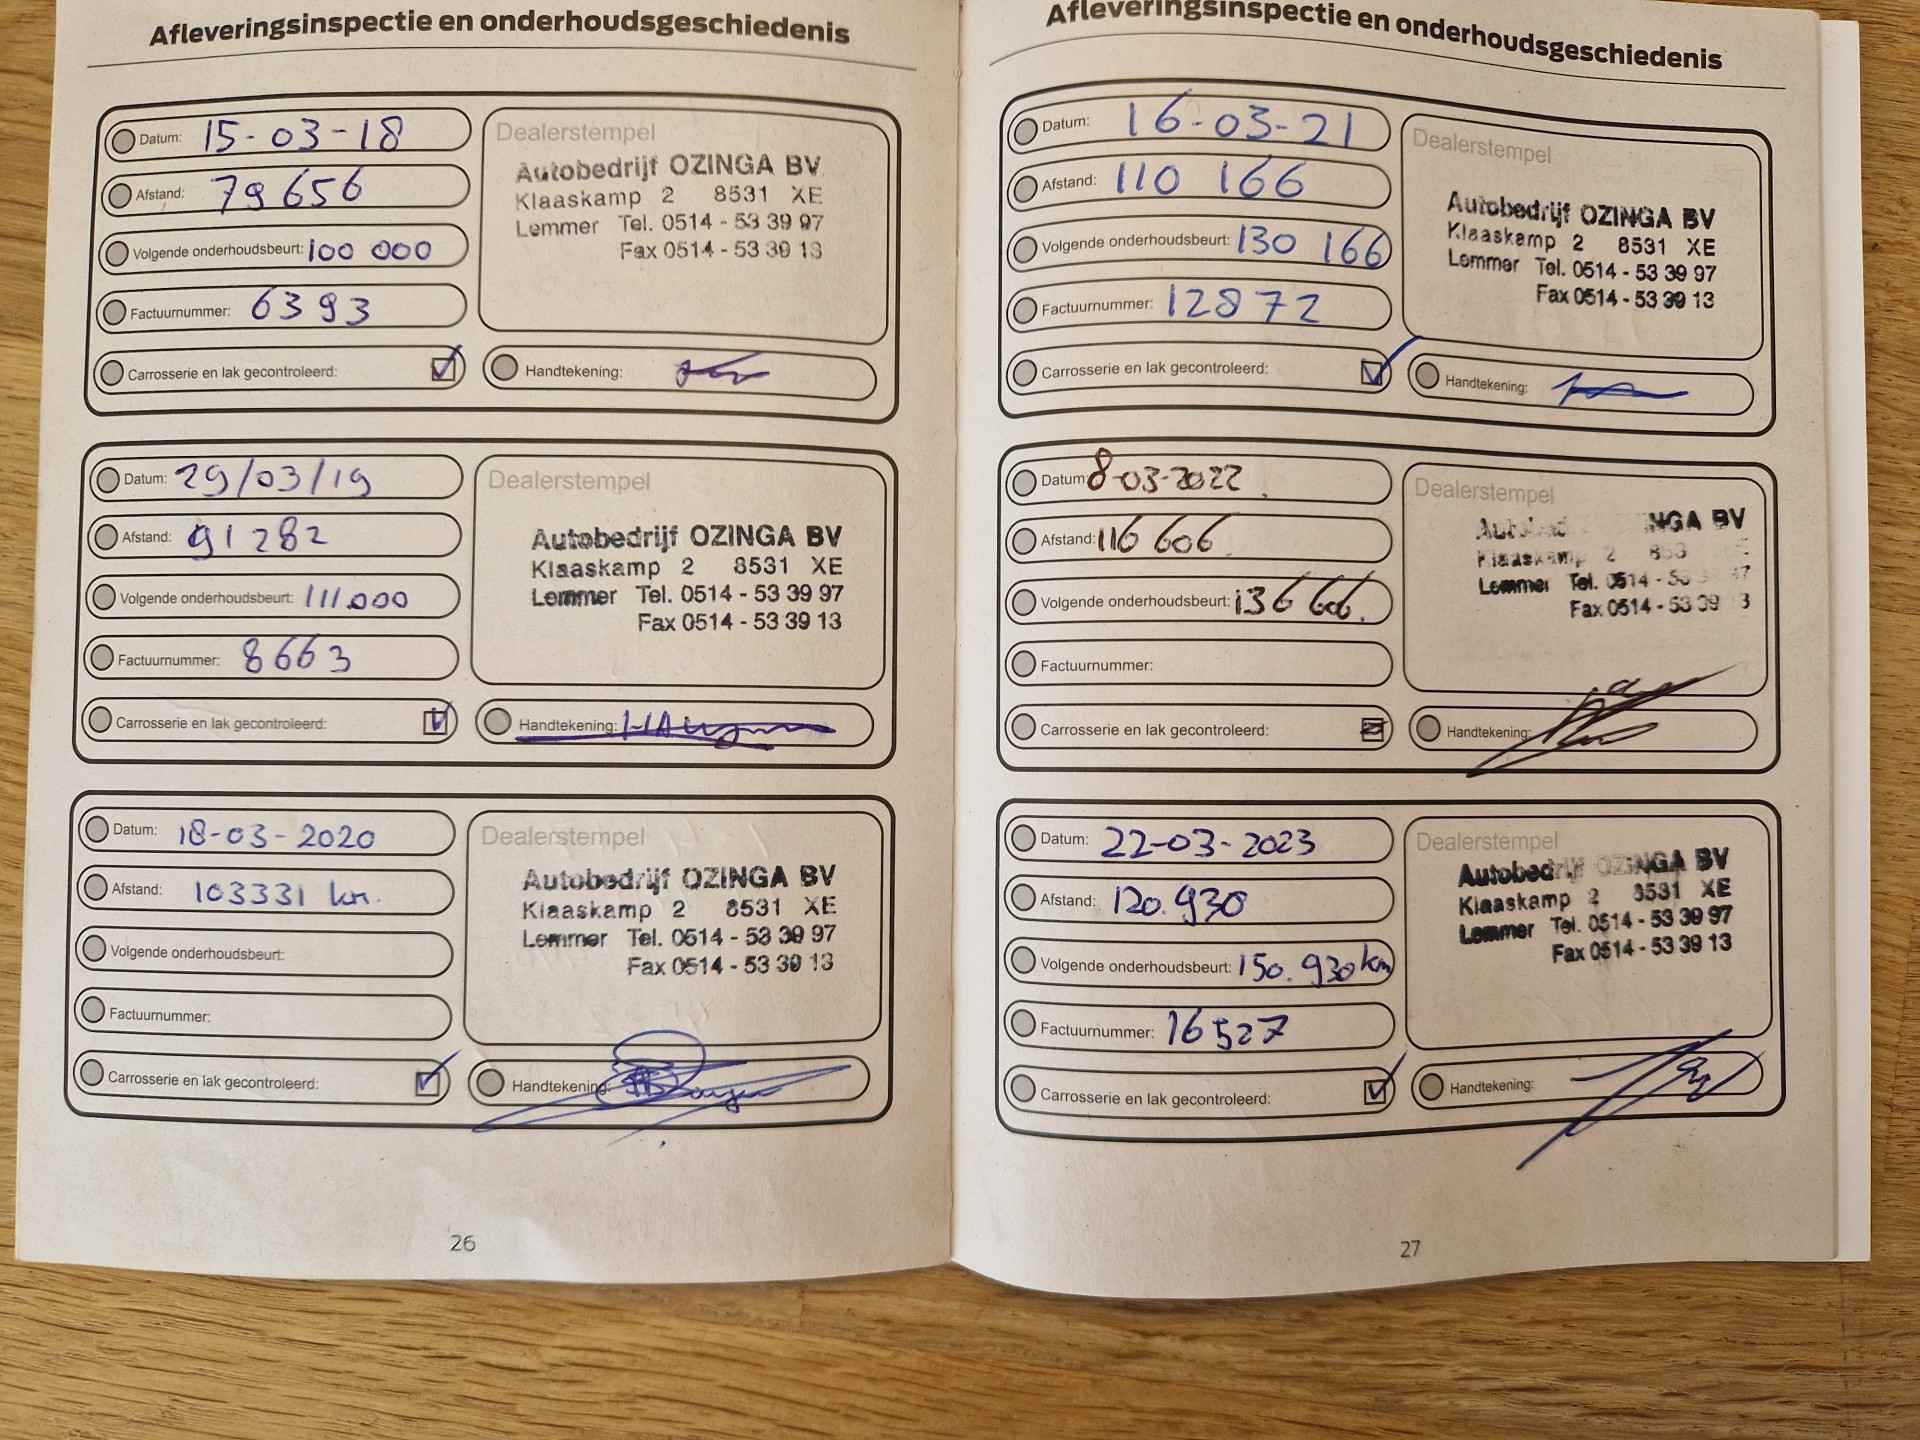 Afleveringsinspectie en onderhoudsgeschiedenis
Datum: 15-03-18
Afstand: 79656
Volgende onderhoudsbeurt: 100 000
Factuurnummer: 6393
Carrosserie en lak gecontroleerd:
Dealerstempel
Autobedrijf OZINGA BV
Klaaskamp 2 8531 XE
Lemmer Tel. 0514 - 53 39 97
Fax 0514 - 53 39 13
Handtekening:
Datum: 29/03/19
Afstand: 91282
Volgende onderhoudsbeurt: 111.000
Factuurnummer: 8663
Carrosserie en lak gecontroleerd:
Dealerstempel
Autobedrijf OZINGA BV
Klaaskamp 2 8531 XE
Lemmer Tel. 0514 - 53 39 97
Fax 0514 - 53 39 13
Handtekening:
Datum: 18-03-2020
Afstand: 103331 km.
Volgende onderhoudsbeurt:
Factuurnummer:
Carrosserie en lak gecontroleerd:
Dealerstempel
Autobedrijf OZINGA BV
Klaaskamp 2 8531 XE
Lemmer Tel. 0514 - 53 39 97
Fax 0514 - 53 39 13
Handtekening:
26
Afleveringsinspectie en onderhoudsgeschiedenis
Datum: 16-03-21
Afstand: 110 166
Volgende onderhoudsbeurt: 130 166
Factuurnummer: 12872
Carrosserie en lak gecontroleerd:
Dealerstempel
Autobedrijf OZINGA BV
Klaaskamp 2 8531 XE
Lemmer Tel. 0514 - 53 39 97
Fax 0514 - 53 39 13
Handtekening:
Datum: 8-03-2022.
Afstand: 116 606.
Volgende onderhoudsbeurt: 136 606.
Factuurnummer:
Carrosserie en lak gecontroleerd:
Dealerstempel
BV
Klaaskamp 2
Lemmer Tel. 0514 - 53
Fax 0514 - 53 39 13
Handtekening:
Datum: 22-03-2023
Afstand: 120.930
Volgende onderhoudsbeurt: 150.930 km
Factuurnummer: 16527
Carrosserie en lak gecontroleerd:
Dealerstempel
Autobedrijf OZINGA BV
Klaaskamp 2 8531 XE
Lemmer Tel. 0514 - 53 39 97
Fax 0514 - 53 39 13
Handtekening:
27